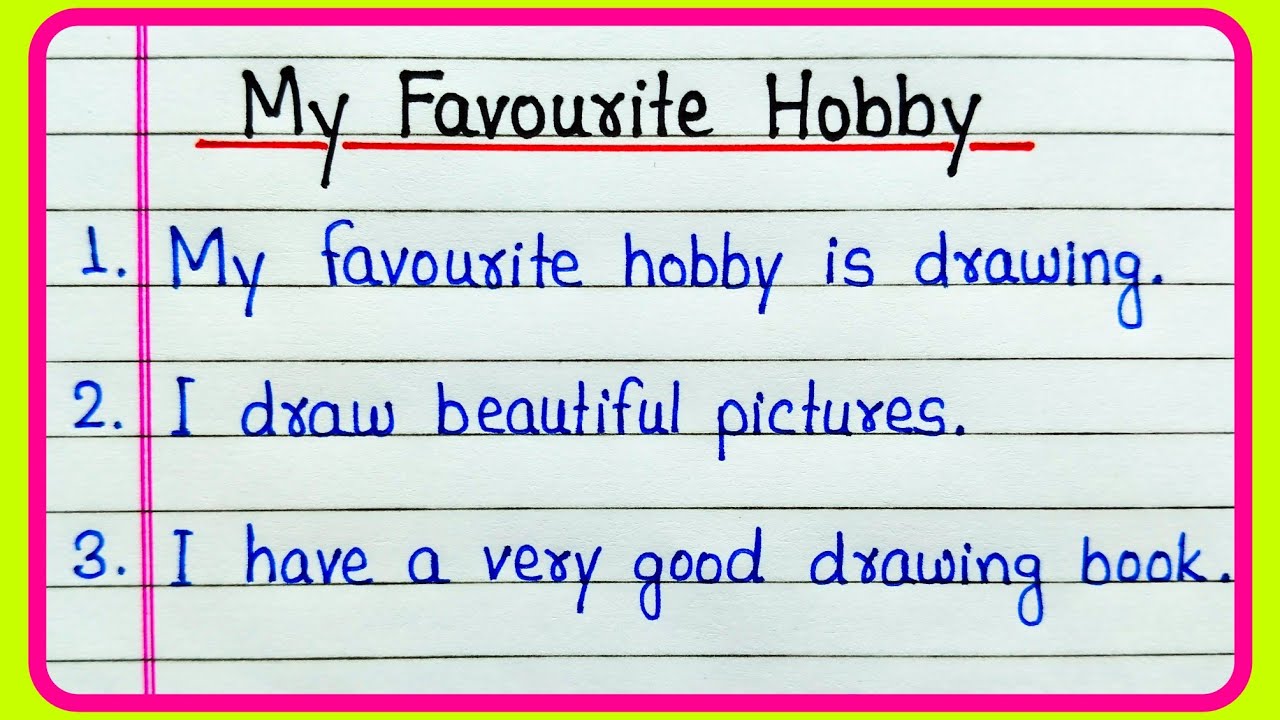 My Favourite Hobby
1. My favourite hobby is drawing.
2. I draw beautiful pictures.
3. I have a very good drawing book.